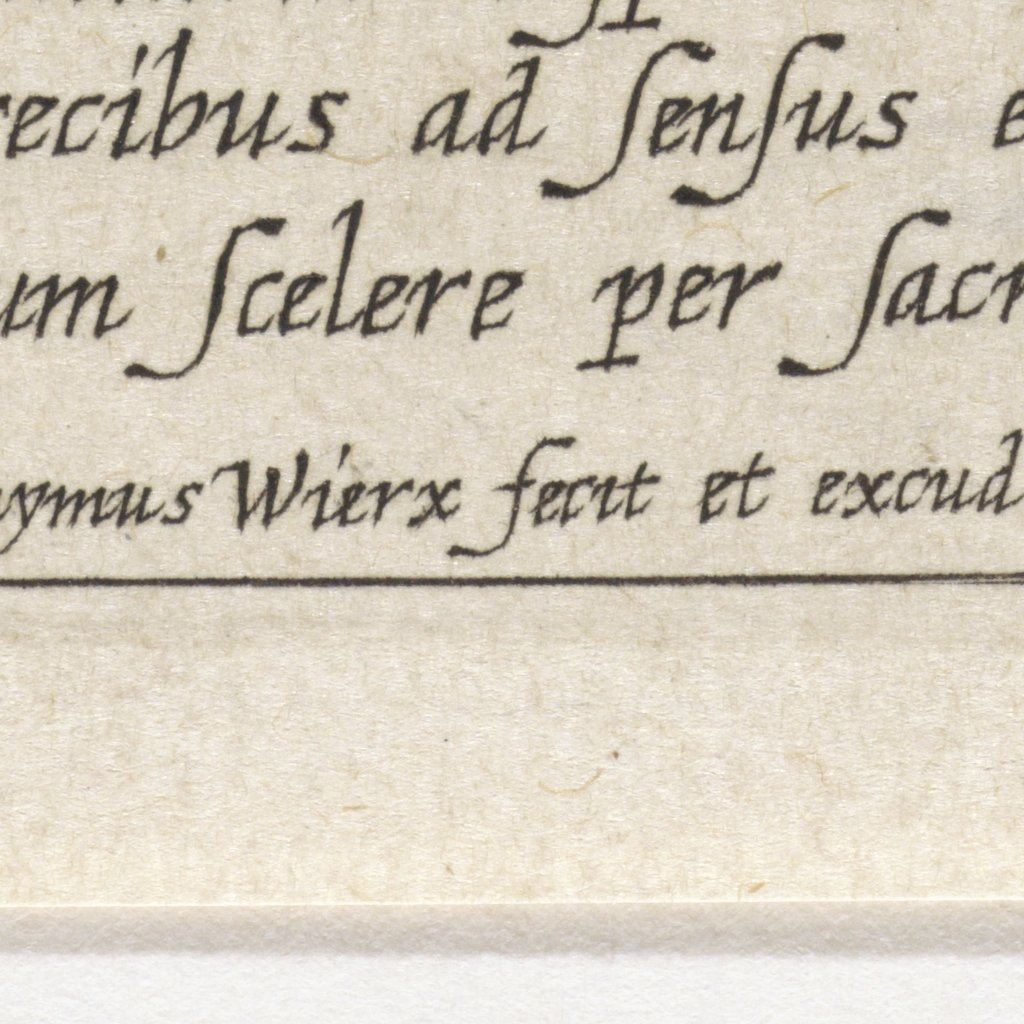 recibus ad ſenſus e
um ſcelere per ſacr
nymus Wierx fecit et excud